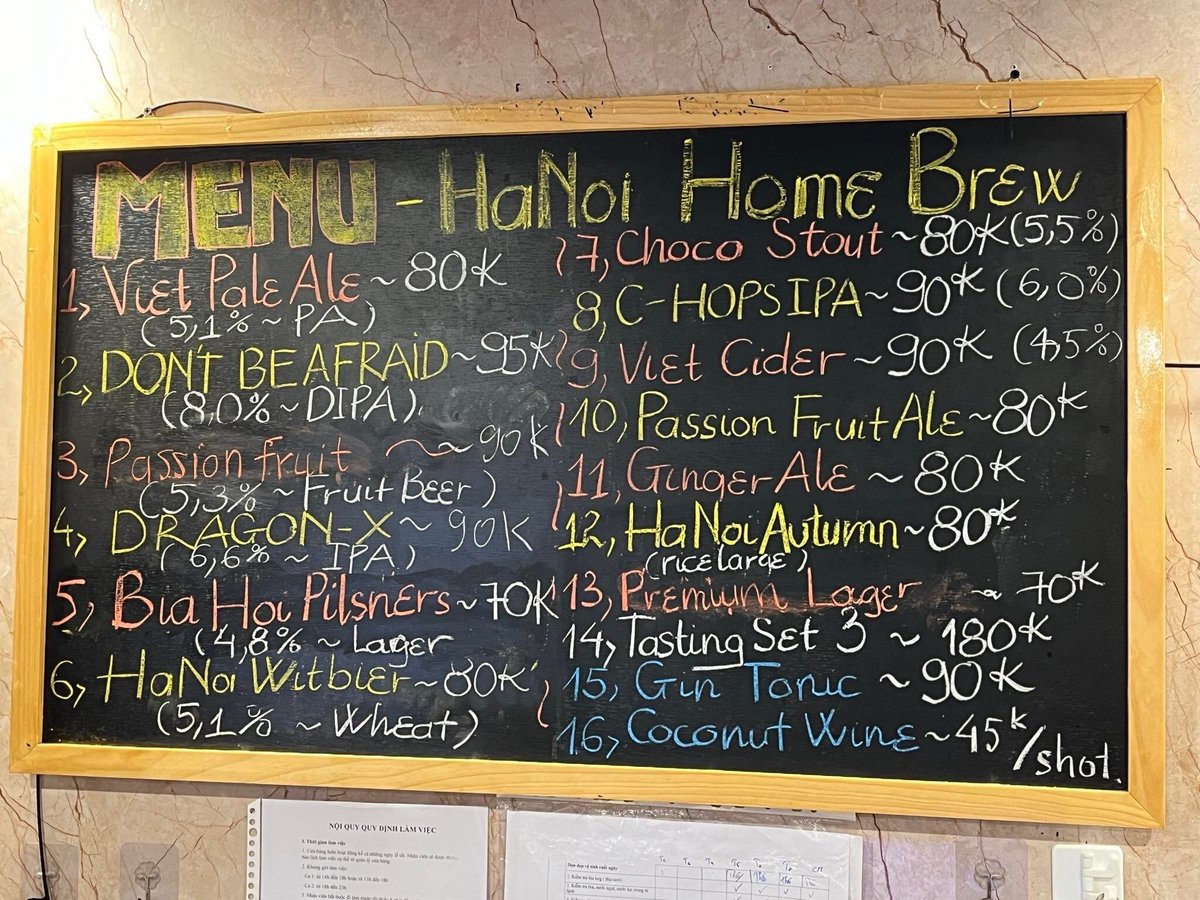 MENU - HaNoi Home Brew
1, Viet Pale Ale ~ 80K
(5,1% ~ PA)
2, DON'T BE AFRAID ~ 95K
(8,0% ~ DIPA)
3, Passion fruit ~ 90K
(5,3% ~ Fruit Beer)
4, DRAGON-X ~ 90K
(6,6% ~ IPA)
5, Bia Hoi Pilsners ~ 70K
(4,8% ~ Lager
6, HaNoi Witbier ~ 80K
(5,1% ~ Wheat)
7, Choco Stout ~ 80K (5,5%)
8, C-HOPS IPA ~ 90K (6,0%)
9, Viet Cider ~ 90K (4,5%)
10, Passion Fruit Ale ~ 80K
11, Ginger Ale ~ 80K
12, HaNoi Autumn ~ 80K
(rice large)
13, Premium Lager ~ 70K
14, Tasting Set 3 ~ 180K
15, Gin Tonic ~ 90K
16, Coconut Wine ~ 45K/shot.
NỘI QUY QUY ĐỊNH LÀM VIỆC
1. Thời gian làm việc
2. Khung giờ làm việc:
- Ca 2: từ 18h đến 23h
Dọn dẹp vệ sinh cuối ngày